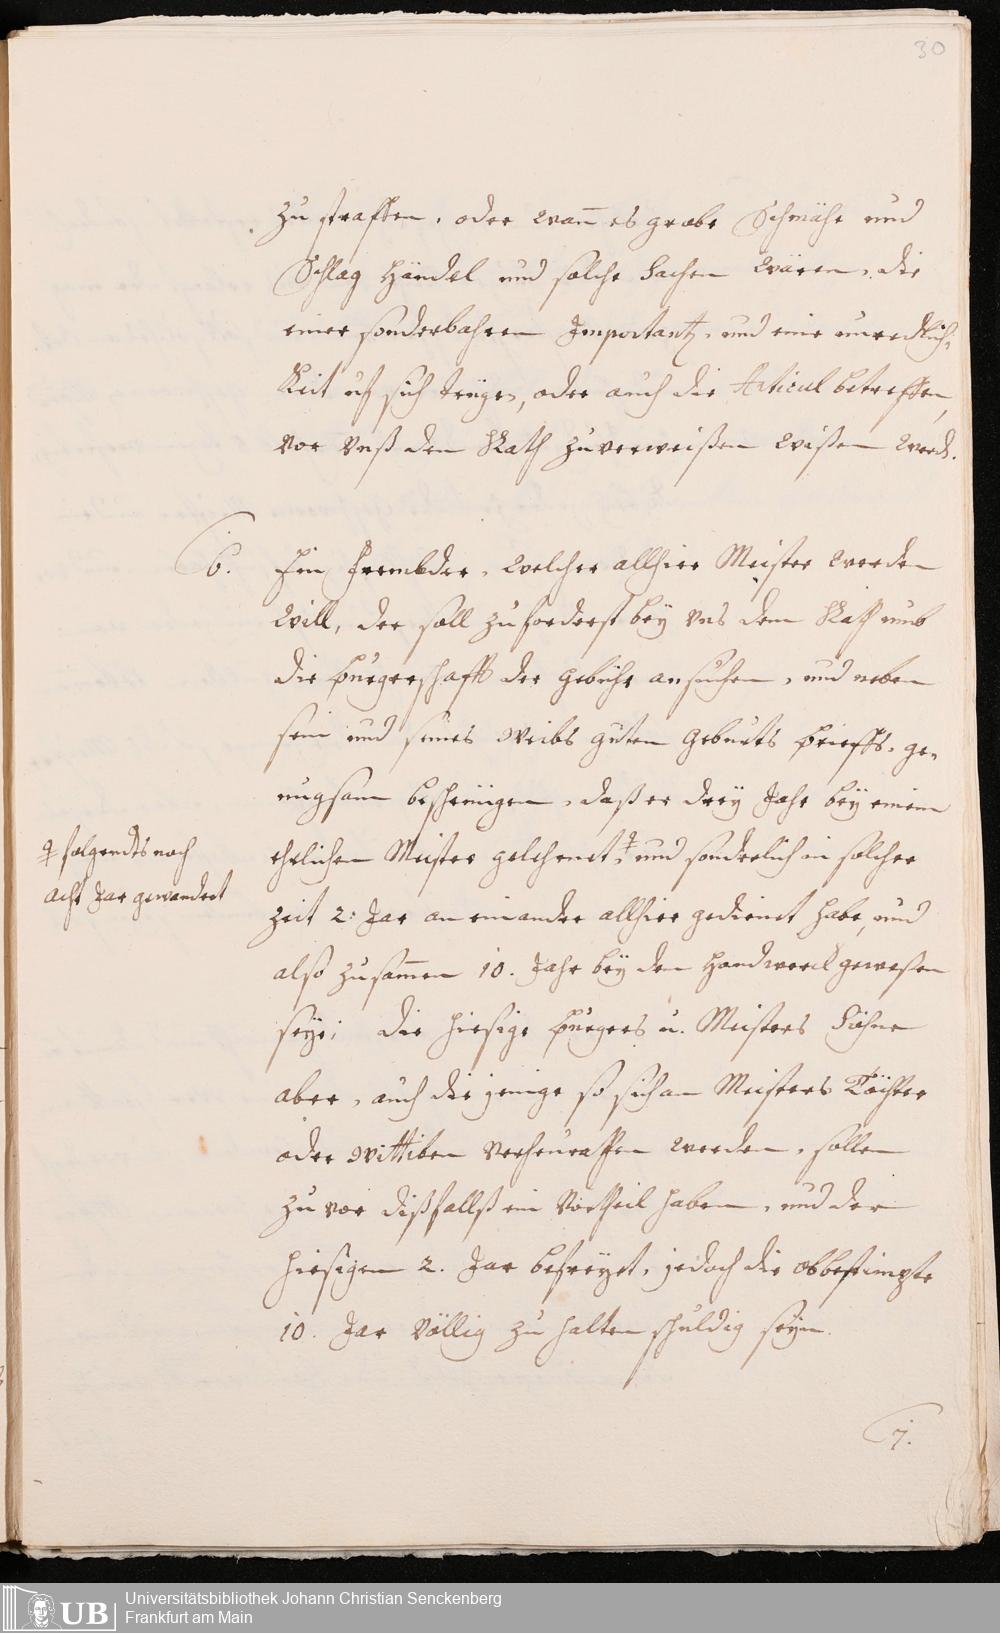 30
zu straffen, oder wan̄ es grobe Schmähe und
Schlag Händel und solche Sachen wären, die
einer sonderbahren Importantz, und eine unredlich-
keit uf sich trüge, oder auch die Articul betreffen,
vor Vnß den Rath zuverweißen wißen werd.
6. Ein Frembder, welcher allhier Meister werden
will, der soll zuforderst bey Vns dem Rath umb
die burgerschafft der gebühr ansuchen, und neben
sein und seines Weibs guten Geburts brieffs, ge-
nugsam bescheinigen, daß er drey Jahr bey einem
ehrlichen Meister gelehrnet, und sonderlich in solcher
folgendts noch
acht Jar gewandert
zeit 2. Jar an einander allhier gedienet habe, und
also zusam̄en 10. Jahr bey dem Handwerck gewesen
seye; die hiesige burgers u. Meisters Söhne
aber, auch die jenige so sich an Meisters Töchter
oder Wittiben verheurathen werden, sollen
zuvor dißfallß ein Vortheil haben, und der
hiesigen 2. Jar befreyet, jedoch die obbestimpte
10. Jar völlig zu halten schuldig seyn.
7.
UB
Universitätsbibliothek Johann Christian Senckenberg
Frankfurt am Main